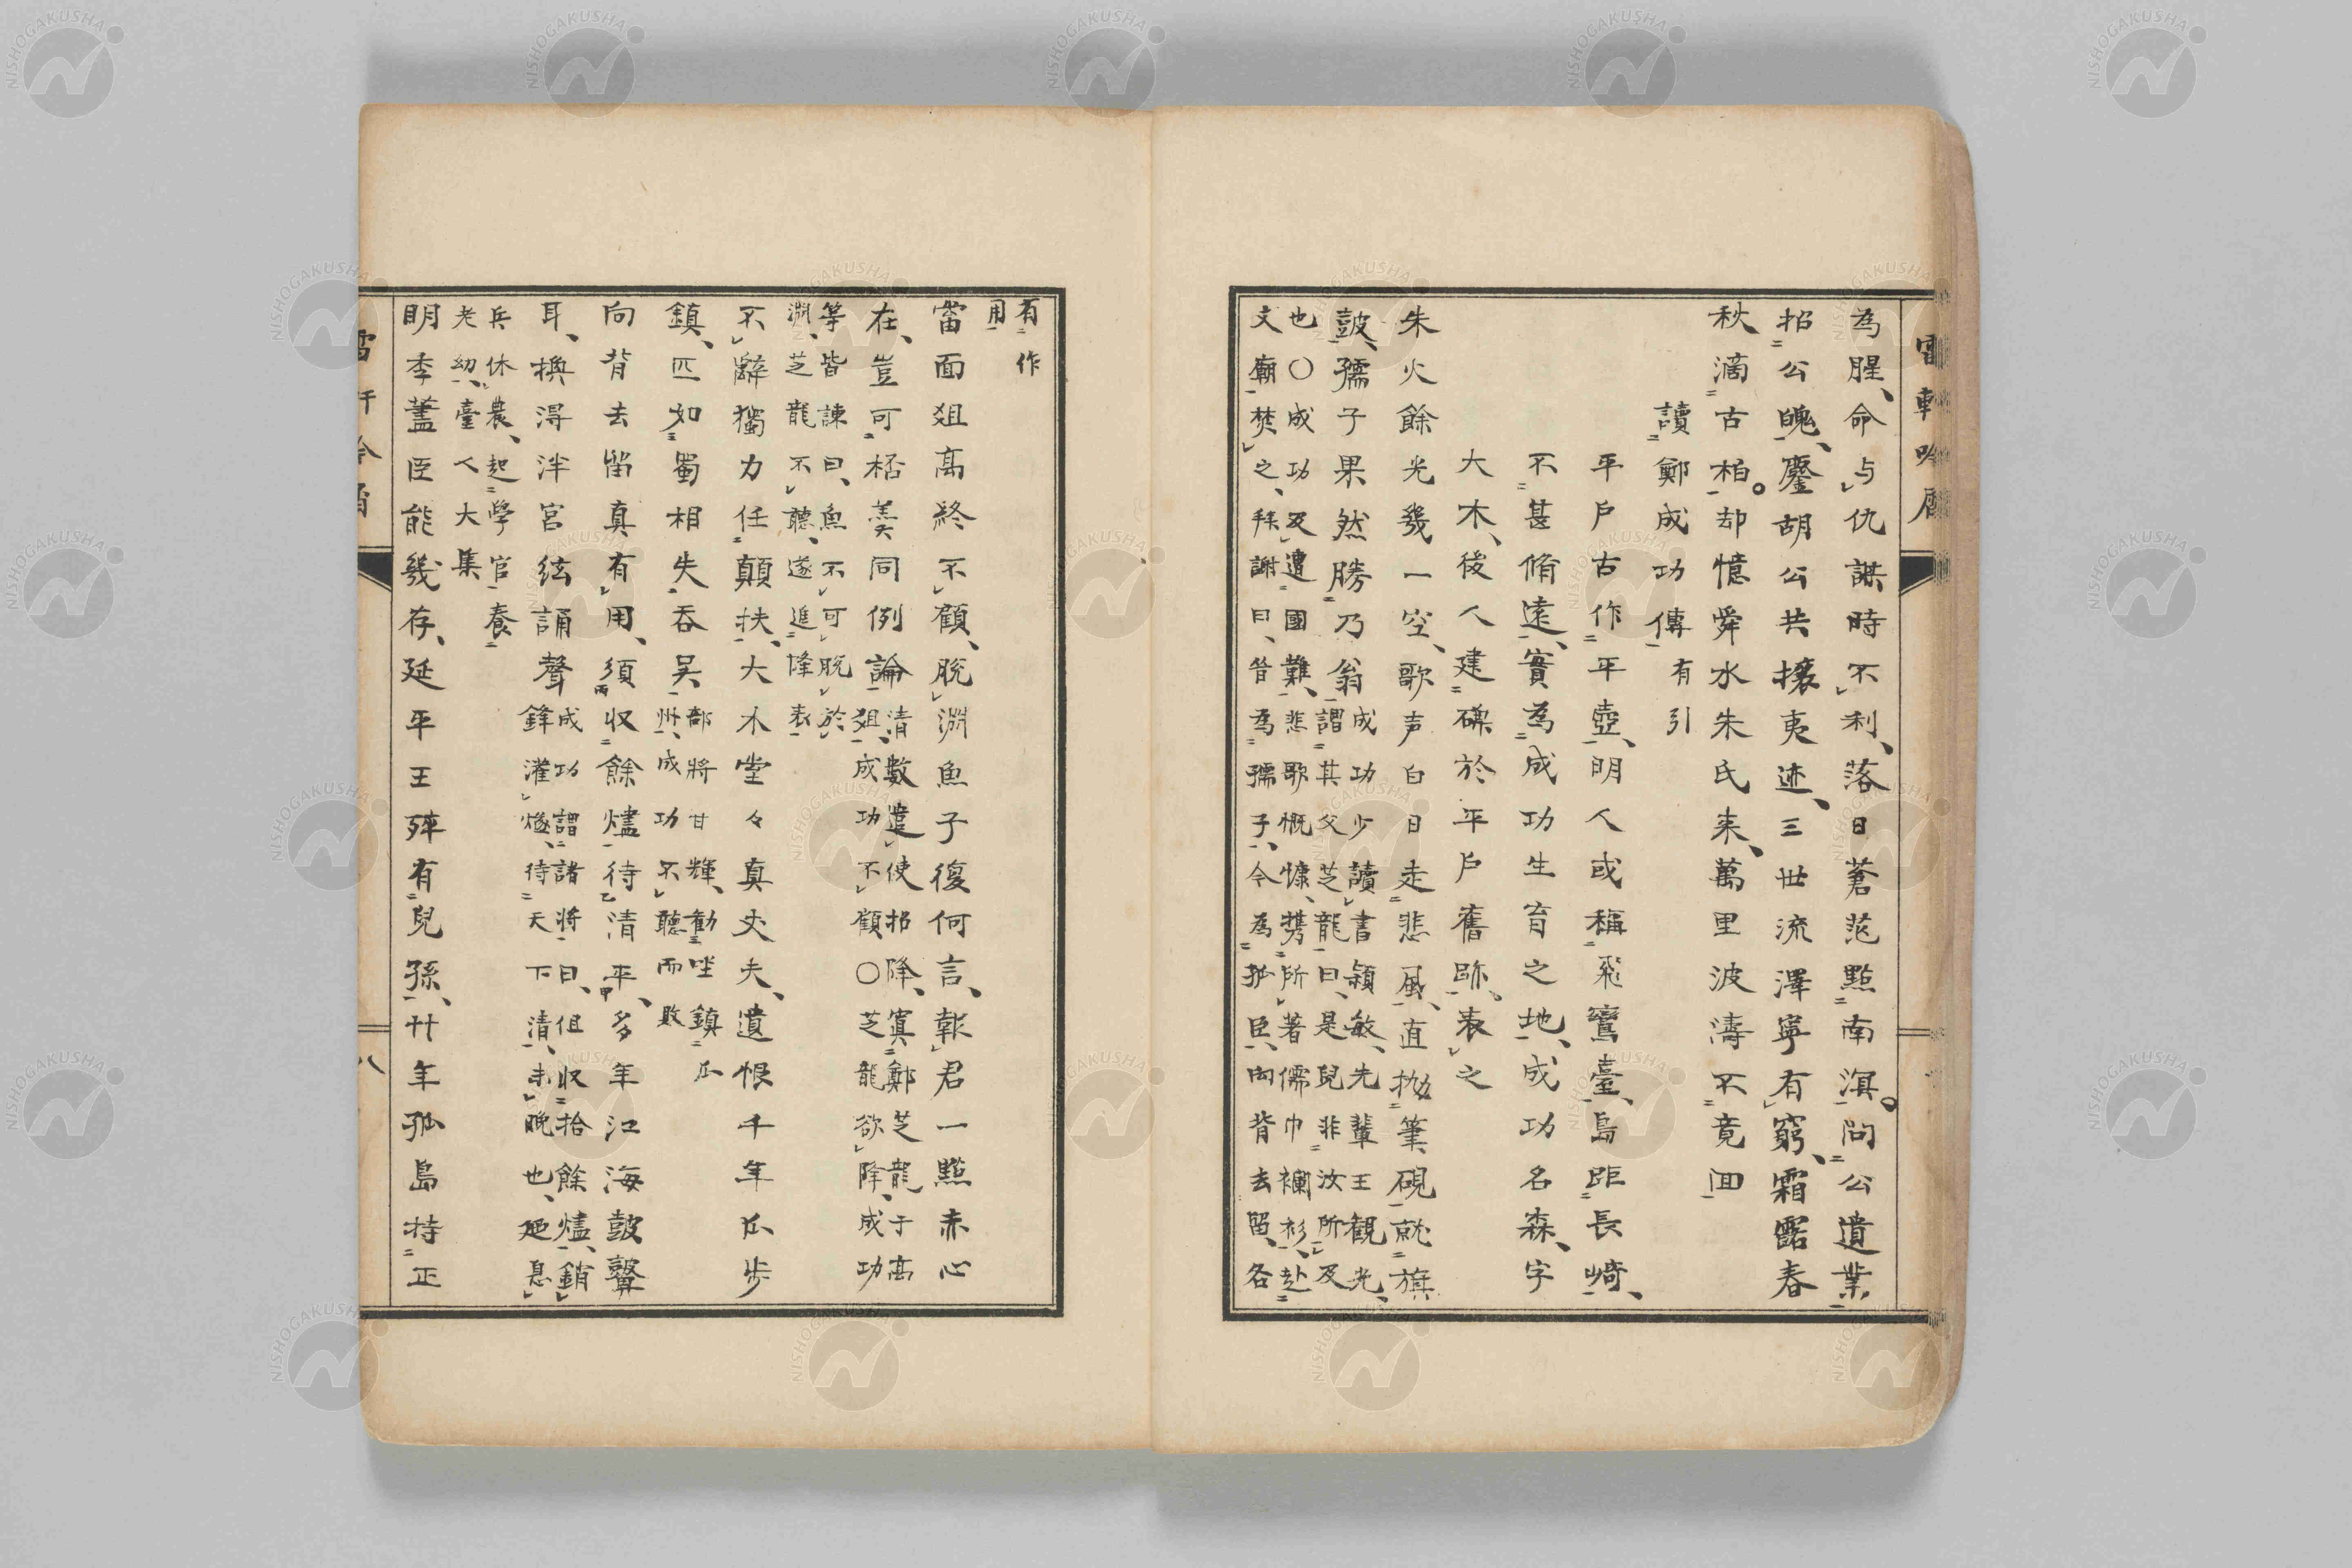 為腥、命与仇謀時不利、落日蒼茫點南溟。問公遺業
招公魄、鏖胡公共攘夷迹、三世流澤寧有窮、霜露春
秋滴古柏。却憶舜水朱氏来、萬里波濤不竟回
讀鄭成功傳 有引
平戶古作平壺、明人或稱飛鸞臺、島距長崎、
不甚脩遠、實為成功生育之地、成功名森、字
大木、後人建碑於平戶舊跡、表之
朱火餘光幾一空、歌声白日走悲風、直拋筆硯就旗
鼓、孺子果然勝乃翁
成功少讀書穎敏、先輩王觀光、
謂其父芝龍曰、是兒非汝所及
也〇成功及遭國難、悲歌慨慷、携所著儒巾襴衫、赴
文廟焚之、拜謝曰、昔為孺子、今為孤臣、向背去留、各
有作
用
當面爼高終不顧、脫淵魚子復何言、報君一點赤心
在、豈可桮羹同例論
清數遣使招降、寘鄭芝龍于高
爼、成功不顧〇芝龍欲降、成功
等皆諫曰、魚不可脫於
淵、芝龍不聽、遂進降表
不辭獨力任顛扶、大木堂々真丈夫、遺恨千年瓜步
鎮、匹如蜀相失吞吴
部將甘輝、勸唑鎮瓜
州、成功不聽而敗
向背去留真有用、須收餘燼待清平、多年江海鼓鼙
耳、換得泮宮絃誦聲
成功謂諸將曰、但收拾餘燼、銷
鋒灌燧、待天下清、未晚也、廼息
兵休農、起學官養
老幼、臺人大集
明季藎臣能幾存、延平王殍有兒孫、廿年孤島持正
雷軒吟屑
八
NISHOGAKUSHA